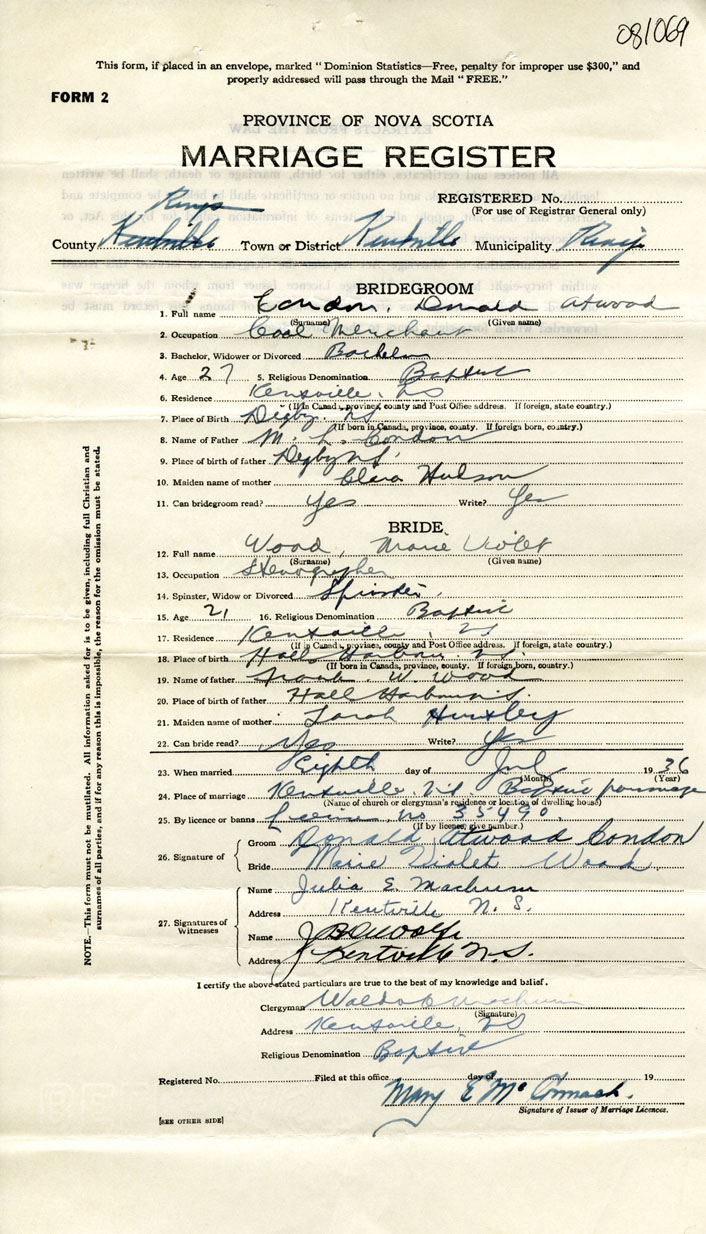 081069
This form, if placed in an envelope, marked "Dominion Statistics—Free, penalty for improper use $300," and
properly addressed will pass through the Mail "FREE."
FORM 2
PROVINCE OF NOVA SCOTIA
MARRIAGE REGISTER
REGISTERED No.
(For use of Registrar General only)
Kings
County Kentville Town or District Kentville Municipality Kings
BRIDEGROOM
1. Full name Condon, Donald Atwood
(Surname) (Given name)
2. Occupation Coal Merchant
3. Bachelor, Widower or Divorced Bachelor
4. Age 27 5. Religious Denomination Baptist
6. Residence Kentville, NS
(If in Canada, province, county and Post Office address. If foreign, state country.)
7. Place of Birth Digby. NS
(If born in Canada, province, county. If foreign born, country.)
8. Name of Father M. L. Condon
9. Place of birth of father Digby NS.
10. Maiden name of mother Clara Hudson
11. Can bridegroom read? Yes Write? Yes
BRIDE
12. Full name Wood, Marie Violet
(Surname) (Given name)
13. Occupation Stenographer
14. Spinster, Widow or Divorced Spinster.
15. Age 21 16. Religious Denomination Baptist
17. Residence Kentville, NS
(If in Canada, province, county and Post Office address. If foreign, state country.)
18. Place of birth Hall Harbour
(If born in Canada, province, county. If foreign born, country.)
19. Name of father Frank W. Wood
20. Place of birth of father Hall Harbour NS.
21. Maiden name of mother Sarah Huntley
22. Can bride read? Yes Write? Yes
23. When married Eighth day of July 1936
(Month) (Year)
24. Place of marriage Kentville, NS Baptist parsonage
(Name of church or clergyman's residence or location of dwelling house)
25. By licence or banns Licence no 35490
(If by licence, give number.)
26. Signature of
Groom Donald Atwood Condon
Bride Marie Violet Wood
27. Signatures of Witnesses
Name Julia E. Machum
Address Kentville N. S.
Name
Address Kentville N.S.
I certify the above stated particulars are true to the best of my knowledge and belief.
Clergyman Waldo Machum
(Signature)
Address Kentville, NS
Religious Denomination Baptist
Registered No. Filed at this office day of 19
Mary E McCormack.
Signature of Issuer of Marriage Licences.
[SEE OTHER SIDE]
NOTE.—This form must not be mutilated. All information asked for is to be given, including full Christian and
surnames of all parties, and if for any reason this is impossible, the reason for the omission must be stated.